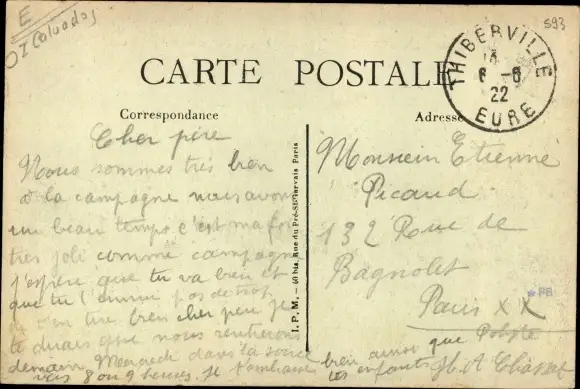 E
(Calvados)
593
CARTE POSTALE
THIBERVILLE
6 -6
22
EURE
Correspondance
Adresse
Cher père
Nous sommes très bien
à la campagne nous avons
un beau temps c'est ma foi
très joli comme campagne
j'espère que tu va bien et
que tu pas de trop
bien cher je
te que nous rentrerons
demain Mercredi dans la soirée
vers 8 ou 9 heures. Je t'embrasse bien ainsi que
les enfants
I. P. M. — 60 bis, Rue du Pré-St-Gervais Paris
Monsieur Etienne
Picaud
132 Rue de
Bagnolet
Paris XX
PB